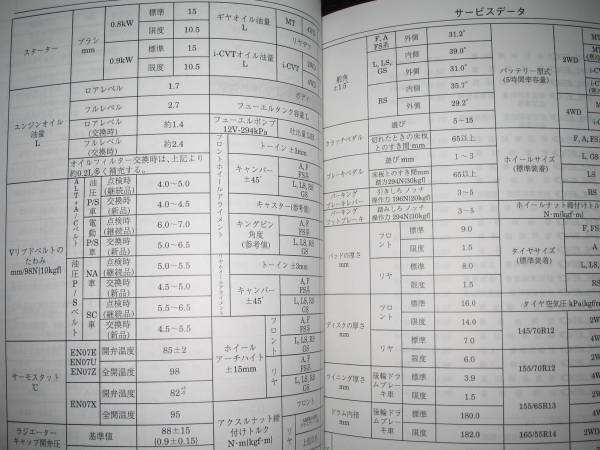 サービスデータ
スターター
ブラシ
mm
0.8kW
標準 15
限度 10.5
0.9kW
標準 15
限度 10.5
ギヤオイル油量
L
MT
リヤデフ
i-CVTオイル油量
L
i-CVT
エンジンオイル
油量
L
ロアレベル 1.7
フルレベル 2.7
ロアレベル
(交換時)
約1.4
フルレベル
(交換時)
約2.4
オイルフィルター交換時は、上記より
約0.2L多く補充する。
ボディ
フューエルタンク容量L
フューエルポンプ
12V-294kPa
吐出量
Vリブドベルトの
たわみ
mm/98N{10kgf}
ALT+A/Cベルト
油圧P/S車
点検時
(継続品)
4.0~5.0
交換時
(新品)
4.0~4.5
電動P/S車
点検時
(継続品)
6.0~7.0
交換時
(新品)
5.0~6.5
油圧P/Sベルト
NA車
点検時
(継続品)
5.0~5.5
交換時
(新品)
4.5~5.0
SC車
点検時
(継続品)
5.5~6.5
交換時
(新品)
4.5~5.5
フロントホイールアライメント
トーイン ±3mm
キャンバー
±45′
A, F
FS系
L, LS, RS
GS
キャスター(参考値)
キングピン
角度
(参考値)
A, F
FS系
L, LS, RS
GS
リヤホイールアライメント
トーイン ±3mm
キャンバー
±45′
A, F
FS系
L, LS, RS
GS
ホイール
アーチハイト
±15mm
フロント
A, F
FS系
L, LS, RS
GS
リヤ
A, F
FS系
L, LS, RS
GS
アクスルナット締
付けトルク
N·m{kgf·m}
フロント
リヤ
サーモスタット
℃
EN07E
EN07U
EN07Z
開弁温度 85±2
全開温度 98
EN07X
開弁温度 82
全開温度 95
ラジエーター
キャップ開弁圧
基準値
88±15
{0.9±0.15}
舵角
±1.5°
F, A
FS系
外側 31.2°
L, LS,
GS
内側 39.0°
外側 31.0°
RS
内側 35.7°
外側 29.2°
クラッチペダル
遊び 5~15
切れたときの床板
とのすき間 mm
65以上
ブレーキペダル
遊び mm 1~3
床板とのすき間mm
踏力294N{30kgf}
65以上
パーキング
ブレーキレバー
引きしろ ノッチ
操作力 196N{20kgf}
3~5
パーキング
フットブレーキ
踏みしろ ノッチ
操作力 294N{30kgf}
3~5
パッドの厚さ
mm
フロント
標準 9.0
限度 1.5
リヤ
標準 8.0
限度 1.5
ディスクの厚さ
mm
フロント
標準 16.0
限度 14.0
リヤ
標準 7.0
限度 6.0
ライニング厚さ
mm
後輪ドラ
ムブレー
キ車
標準 3.9
限度 1.5
ドラム内径
mm
後輪ドラ
ムブレー
キ車
標準 180.0
限度 182.0
バッテリー型式
(5時間率容量)
2WD
4WD
MT
i-C
ホイールサイズ
(標準装着)
F, A, FS
L, GS
LS
RS
ホイールナット締付け
N·m{kgf·m}
タイヤサイズ
(標準装着)
F,
A,
L,
RS
タイヤ空気圧 kPa{kgf/c
145/70R12
2W
4W
155/70R12
2W
4W
155/65R13
2W
4W
165/55R14
2W